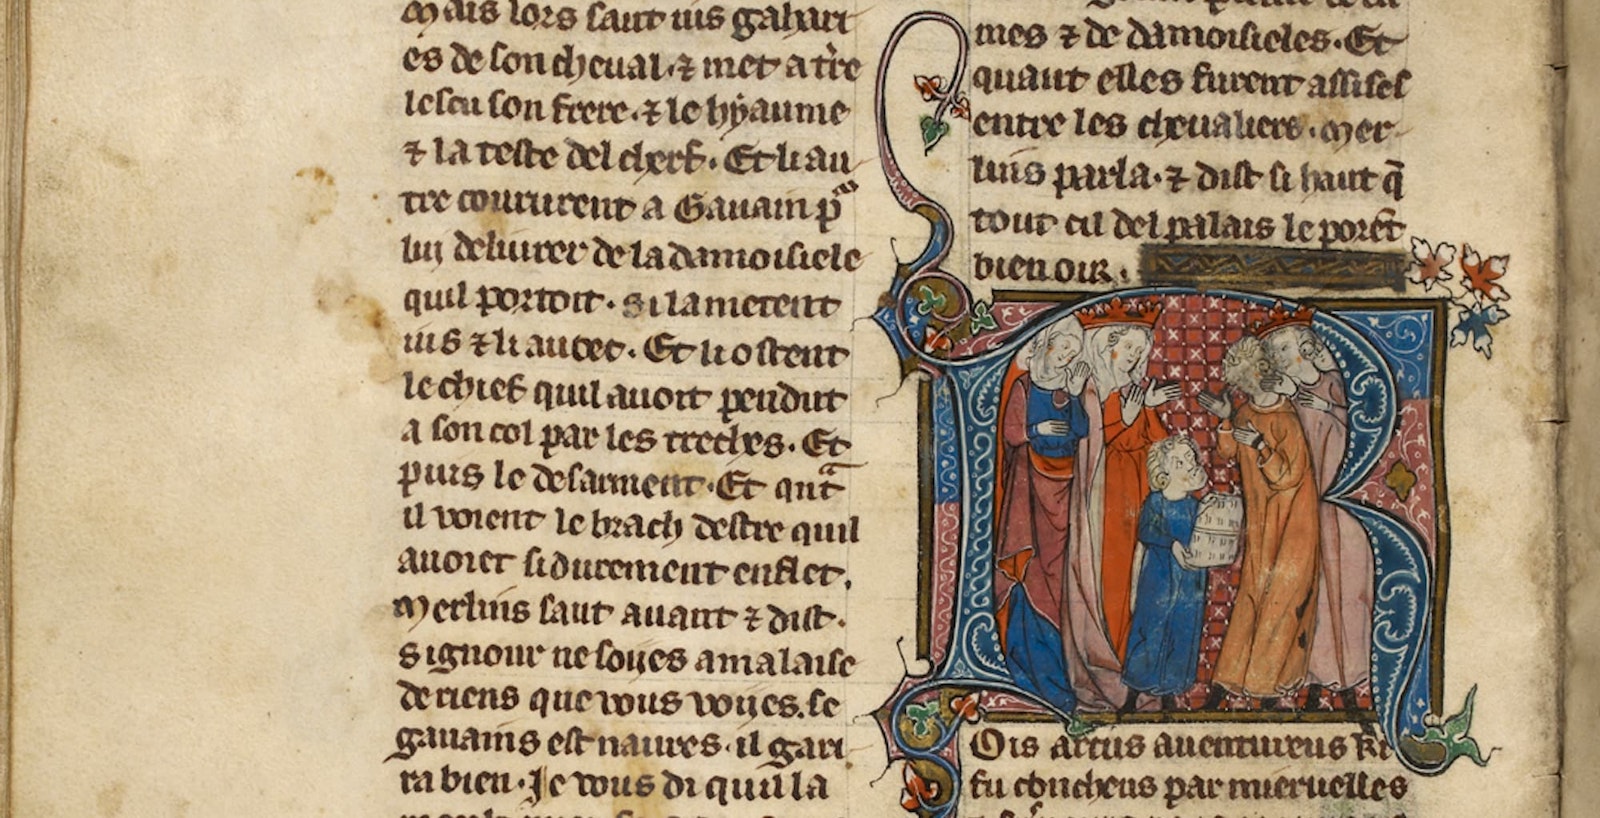 Mais lors saut ius gaharı
es de son cheual · ⁊ met a t̾re
lescu son frere · ⁊ le hyaume
⁊ la teste del cherf · Et li au
tre coururent a Gauain pͣ
lui deliurer de la damoisiele
quil portoit · si la metent
ius ⁊ li autet · Et li ostent
le chief quil auoit pendut
a son col par les treches · Et
puis le desarment · Et qu͛t
il voient le brach destre quil
auoit si durement enflet .
Merlins saut auant ⁊ dist ·
Signour ne soyes a malaise
de riens que vous voyes . se
gauains est naures · il gari
ra bien · Je vous di quil la
mes ⁊ de damoisieles · Et
quant elles furent assises
entre les cheualiers · Mer
lins parla · ⁊ dist si haut q̄
tout cil del palais le porent
bien oir .
R
Ois artus auentureus ki
fu concheus par mieruelles